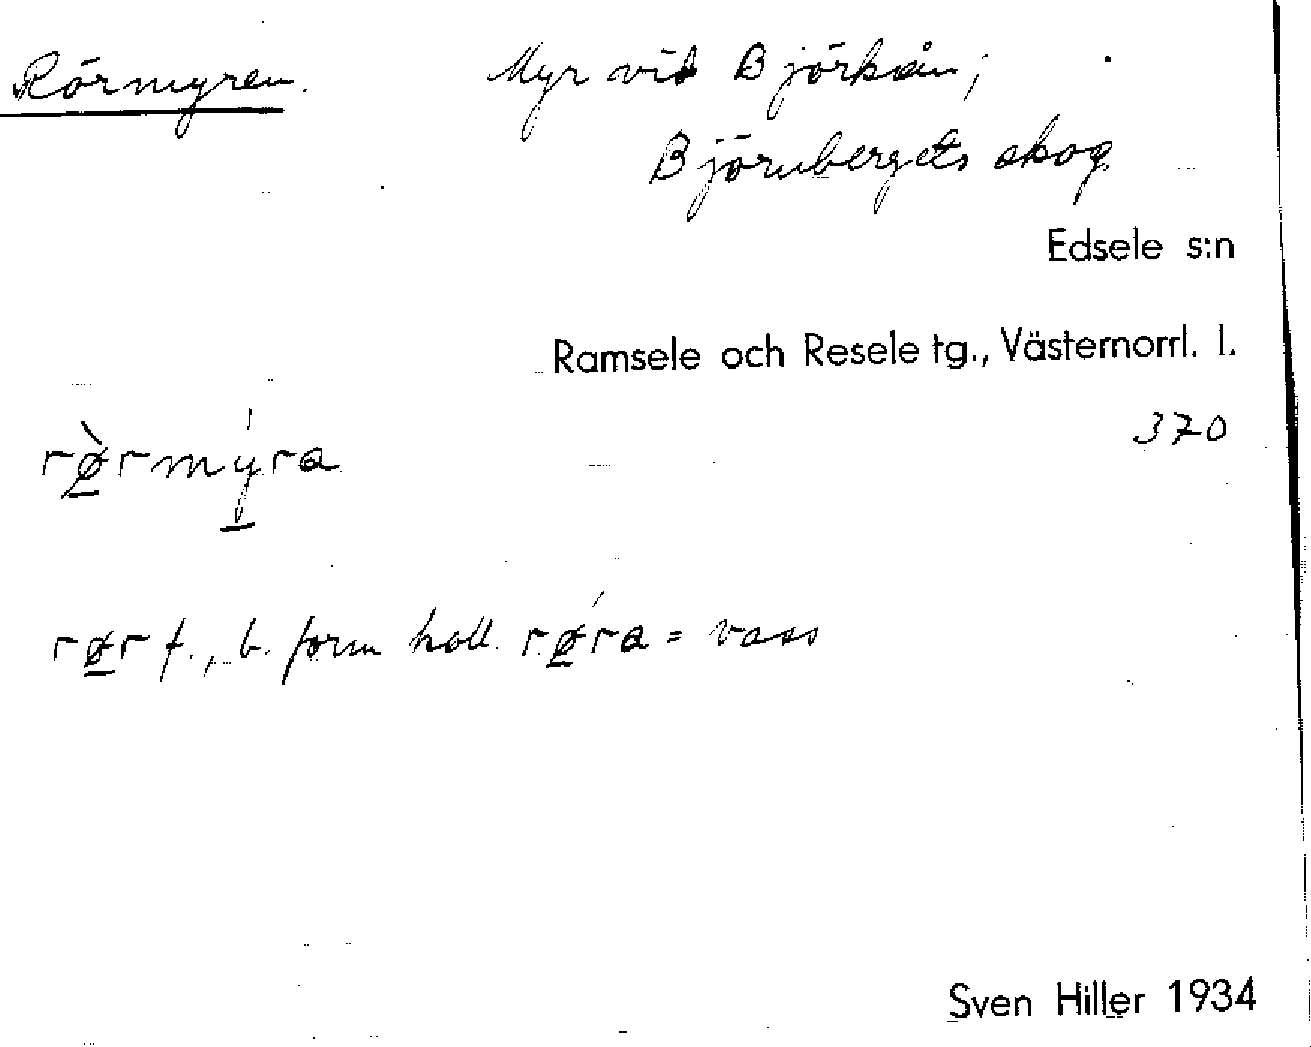 Rörmyren. Myr vid Björkån;
Björnbergets skog
Edsele s:n
Ramsele och Resele tg., Västernorrl. l.
370
rø̠̀rmý̠ra
rø̠r f., b. form koll. rǿ̠ra = vass
Sven Hiller 1934